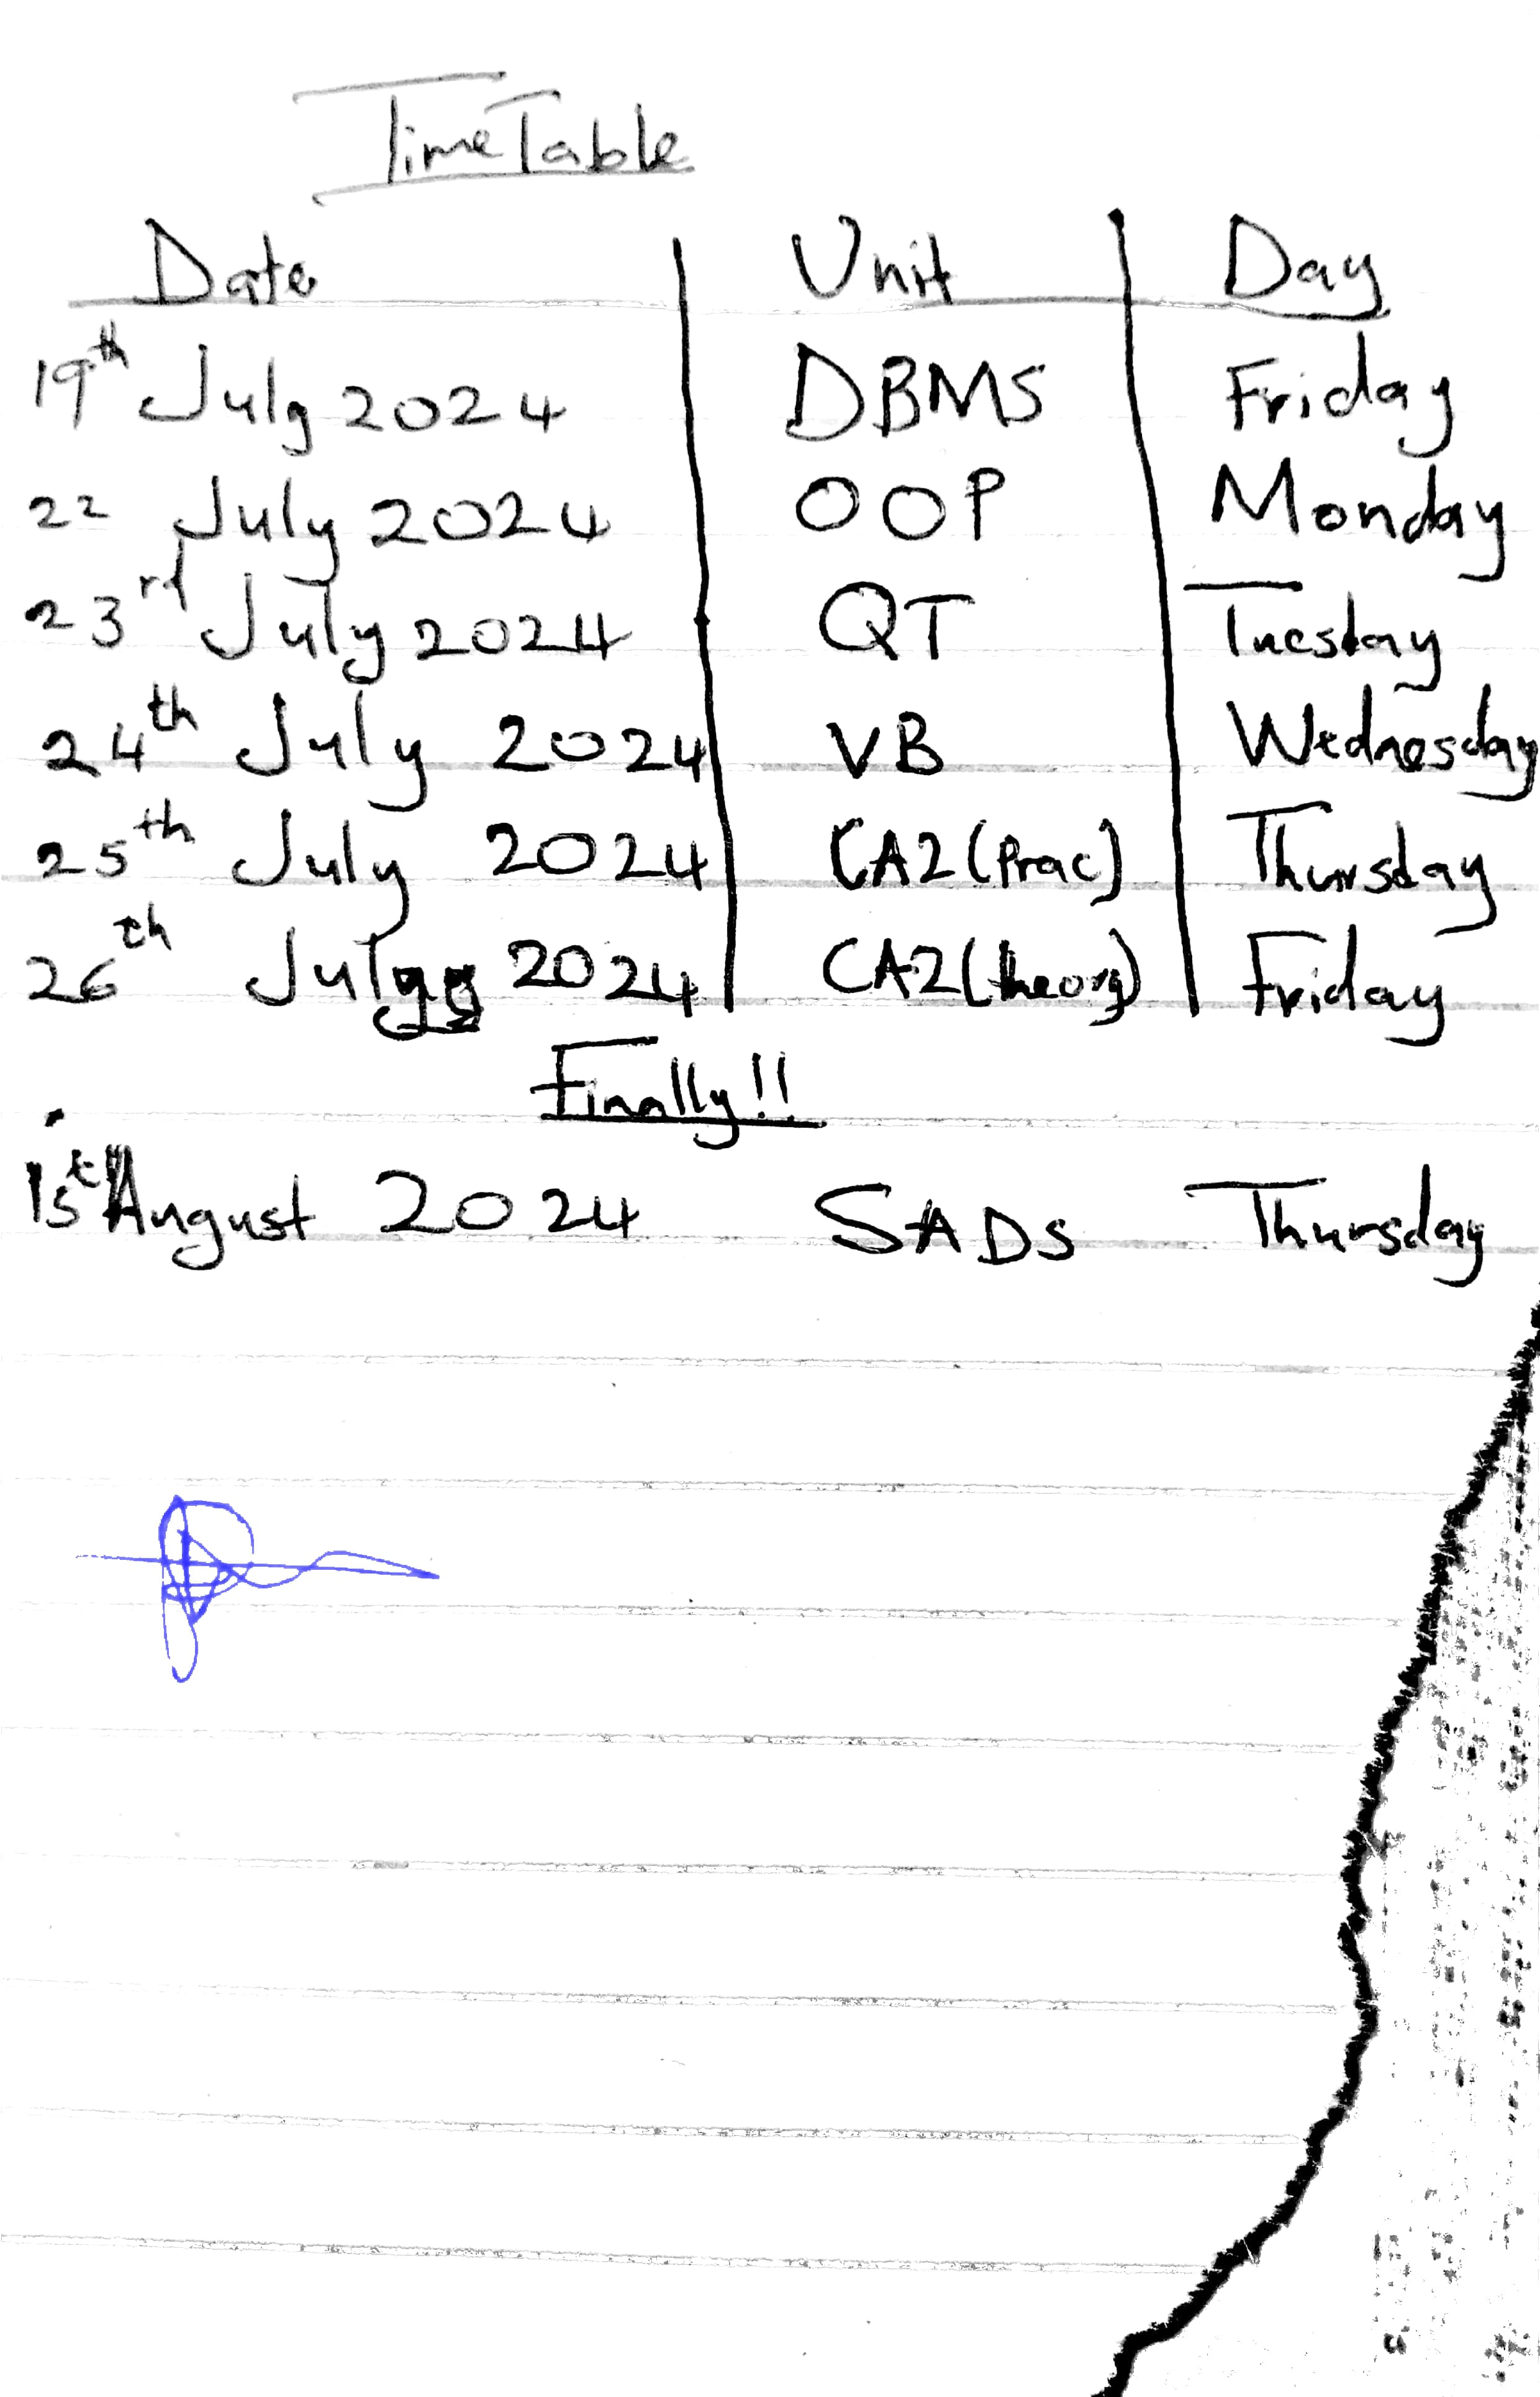 TimeTable
Date Unit Day
19th July 2024 DBMS Friday
22 July 2024 OOP Monday
23rd July 2024 QT Tuesday
24th July 2024 VB Wednesday
25th July 2024 CA2(Prac) Thursday
26th July 2024 CA2(theory) Friday
Finally!!
15th August 2024 SADS Thursday